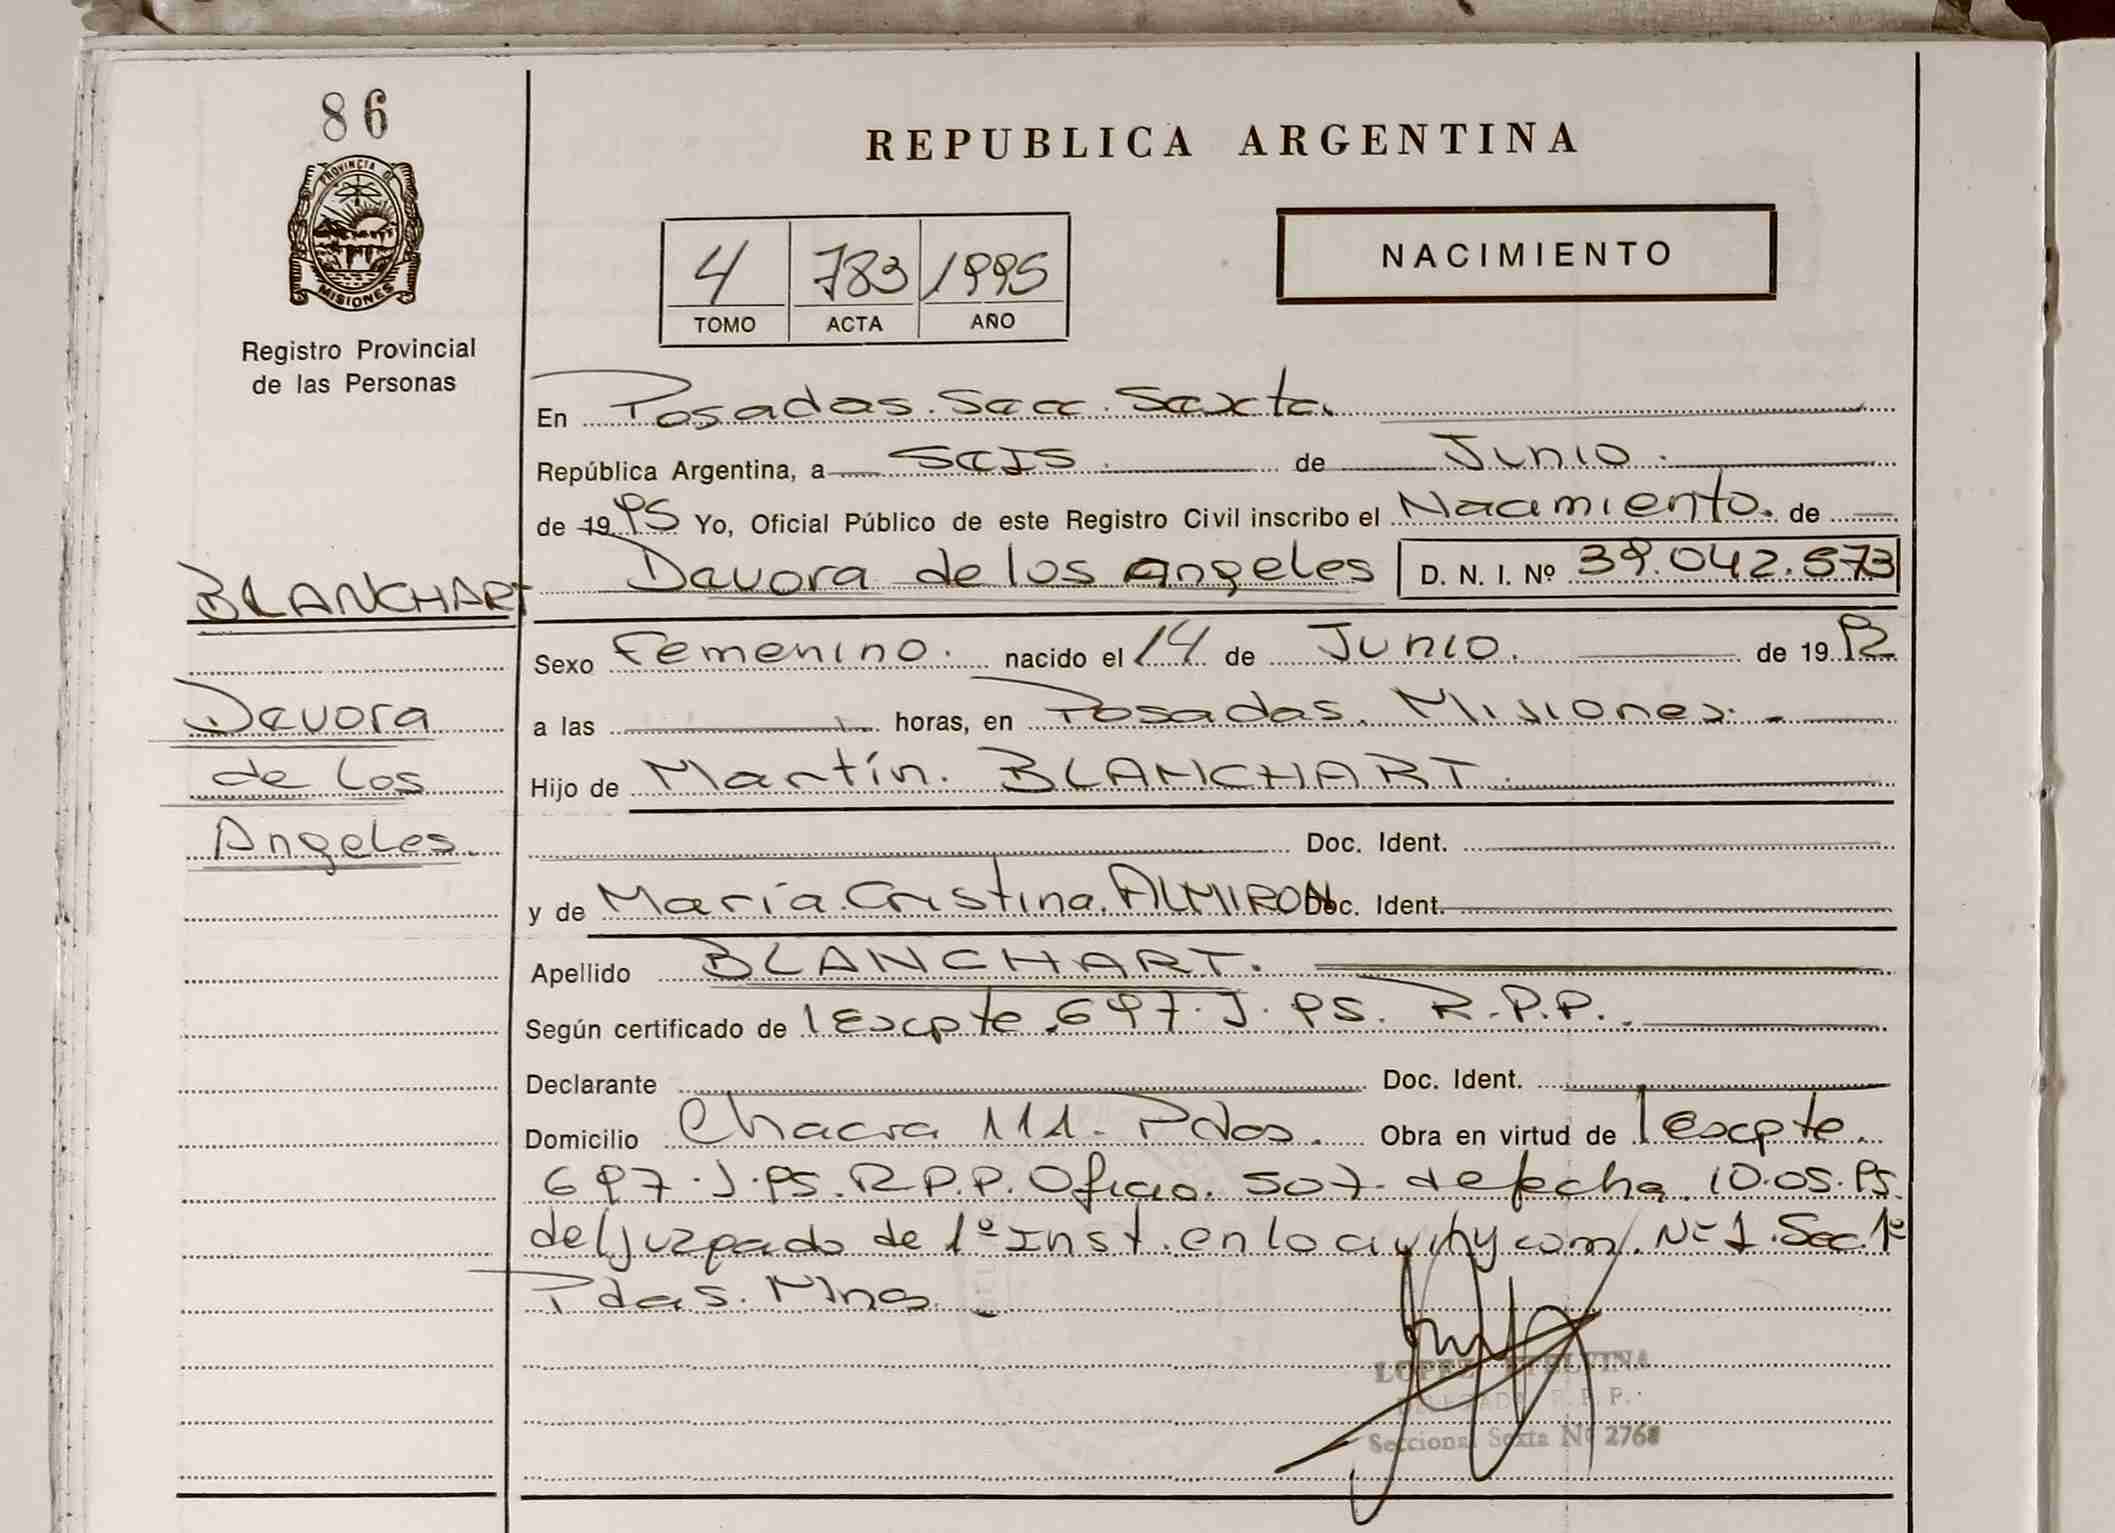 86
PROVINCIA DE
MISIONES
Registro Provincial
de las Personas
REPUBLICA ARGENTINA
4 783 1995
TOMO ACTA AÑO
NACIMIENTO
En Posadas. Secc. Sexta.
República Argentina, a Seis. de Junio.
de 19 95 Yo, Oficial Público de este Registro Civil inscribo el Nacimiento. de
BLANCHART
Davora de los Angeles D. N. I. Nº 39.042.573
Sexo Femenino. nacido el 14 de Junio. de 19 92
Davora
a las horas, en Posadas. Misiones.
de Los
Hijo de Martín. BLANCHART.
Angeles.
Doc. Ident.
y de María.Cristina.ALMIRON Doc. Ident.
Apellido BLANCHART.
Según certificado de Expte.697.J.95. R.P.P.
Declarante Doc. Ident.
Domicilio Chacra 111. Pdas. Obra en virtud de Expte.
697.J.95.R.P.P. Oficio. 507. de fecha 10.05.95.
del Juzgado de 1º Inst. en lo civil y com. Nº 1. Sec. 1º
Pdas. Mnes.
LOPEZ ETELVINA
R. P. P.
Seccional Sexta Nº 2768